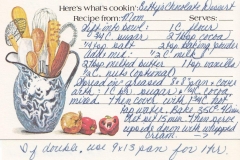 Here's what's cookin': Betty's Chocolate Dessert
Recipe from: Mom Serves:
Sift into bowl: 1 C. flour
3/4 C. sugar 2 Tbsp cocoa
1/4 tsp salt 2 tsp baking powder
Add mix: 1/2 C. milk
2 Tbsp melted butter 1 tsp vanilla
C. nuts (optional)
Spread in greased pan & cover
with C. sugar & cocoa
mixed. Then cover with C. hot
tap water. Bake 350° 40 min
Let set 15 min. Then serve
upside down with whipped
cream
If double, use 9x13 pan for 1 hr